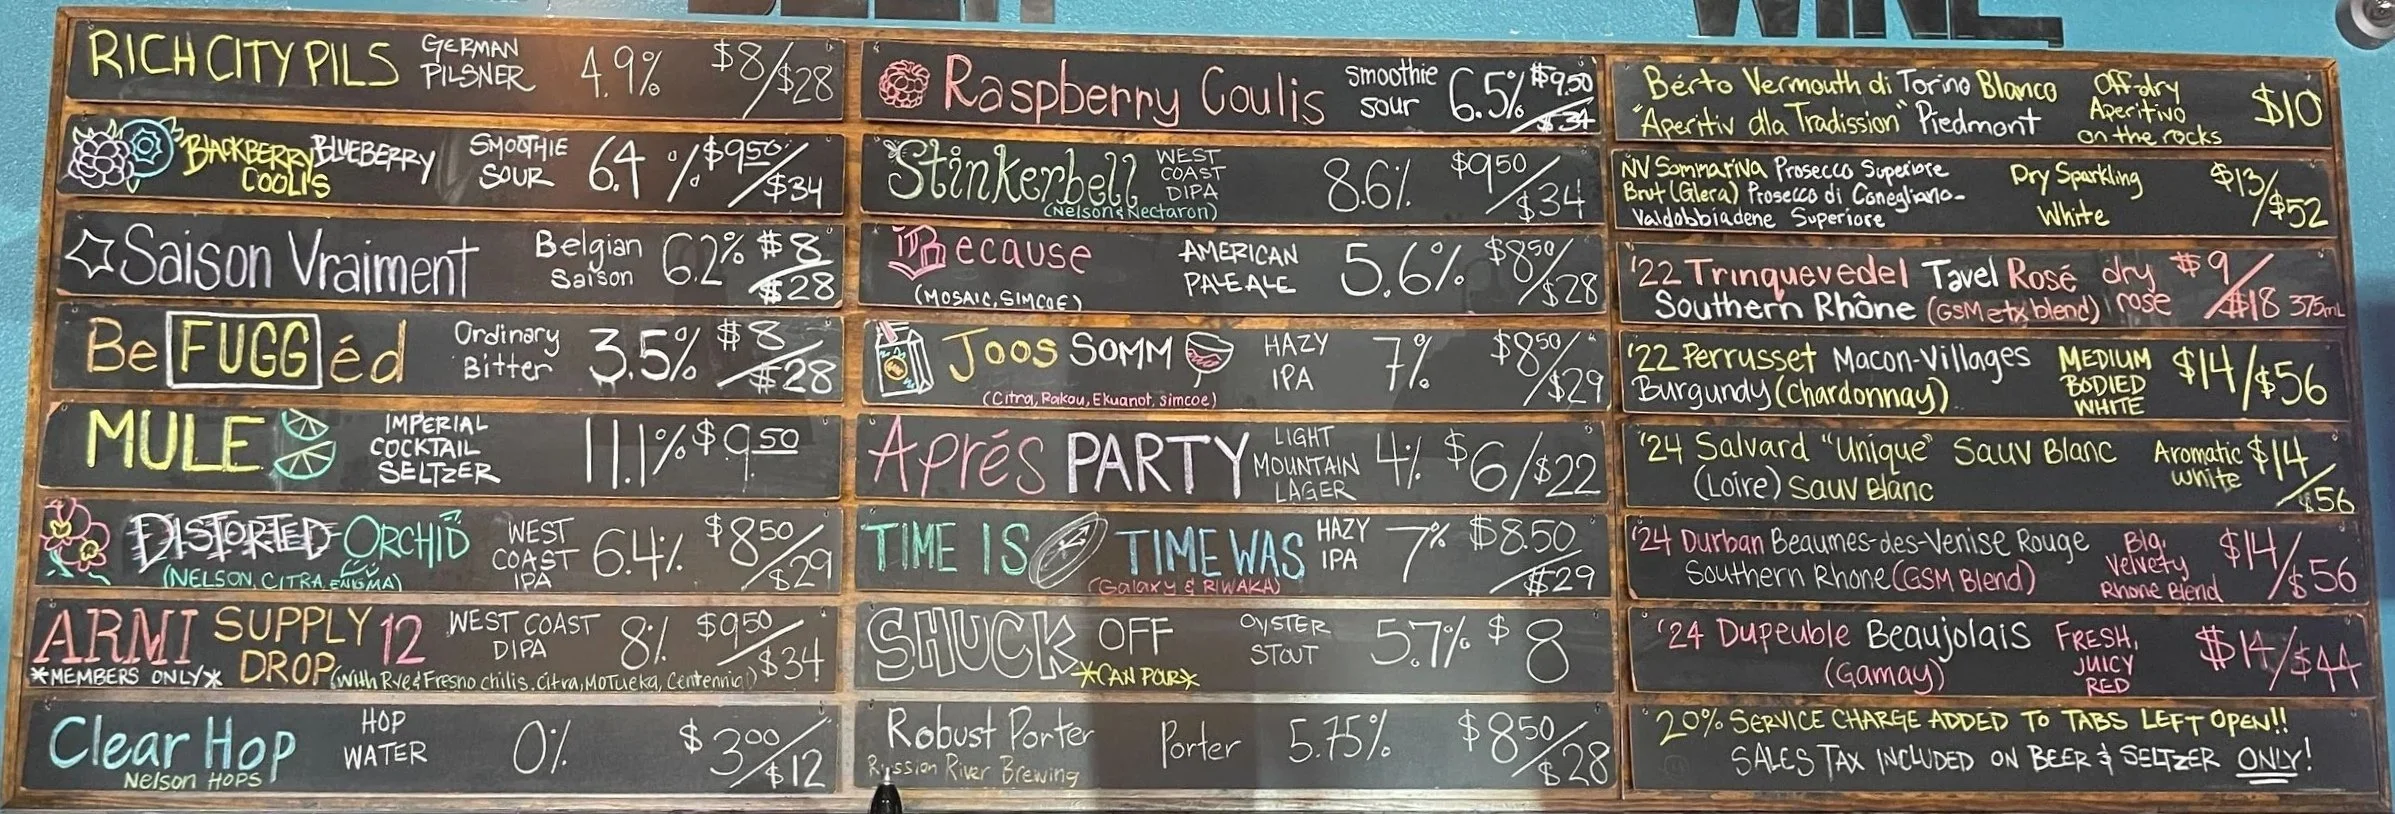 WINE
RICH CITY PILS GERMAN PILSNER 4.9% $8/$28
BLACKBERRY BLUEBERRY COOLIS SMOOTHIE SOUR 6.4% $9.50/$34
Saison Vraiment Belgian Saison 6.2% $8/$28
Be FUGG éd Ordinary Bitter 3.5% $8/$28
MULE IMPERIAL COCKTAIL SELTZER 11.1% $9.50
DISTORTED ORCHID WEST COAST IPA 6.4% $8.50/$29
(NELSON, CITRA, ENIGMA)
ARMI SUPPLY DROP 12 WEST COAST DIPA 8% $9.50/$34
*MEMBERS ONLY* (with Rye & Fresno chilis. Citra, MOTueka, Centennial)
Clear Hop HOP WATER 0% $3.00/$12
Nelson HOPS
Raspberry Coulis smoothie sour 6.5% $9.50/$34
Stinkerbell WEST COAST DIPA 8.6% $9.50/$34
(Nelson & Nectaron)
Because AMERICAN PALE ALE 5.6% $8.50/$28
(MOSAIC, SIMCOE)
JOOS SOMM HAZY IPA 7% $8.50/$29
(Citra, Rakau, Ekuanot, simcoe)
Aprés PARTY LIGHT MOUNTAIN LAGER 4% $6/$22
TIME IS TIME WAS HAZY IPA 7% $8.50/$29
(Galaxy & RIWAKA)
SHUCK OFF OYSTER STOUT 5.7% $8
*CAN POUR*
Robust Porter Porter 5.75% $8.50/$28
Russian River Brewing
Berto Vermouth di Torino Blanco Off-dry
"Aperitiv dla Tradission" Piedmont Aperitivo on the rocks $10
NV Sommariva Prosecco Superiore
Brut (Glera) Prosecco di Conegliano-
Valdobbiadene Superiore Dry Sparkling White $13/$52
'22 Trinquevedel Tavel Rosé dry rosé $9/$18 375mL
Southern Rhône (GSM etx blend)
'22 Perrusset Macon-Villages MEDIUM BODIED WHITE $14/$56
Burgundy (Chardonnay)
'24 Salvard "Unique" Sauv Blanc Aromatic white $14/$56
(Loire) Sauv Blanc
'24 Durban Beaumes-des-Venise Rouge Big, Velvety Rhone Blend $14/$56
Southern Rhone (GSM Blend)
'24 Dupeuble Beaujolais FRESH, JUICY RED $14/$44
(Gamay)
20% SERVICE CHARGE ADDED TO TABS LEFT OPEN!!
SALES TAX INCLUDED ON BEER & SELTZER ONLY!